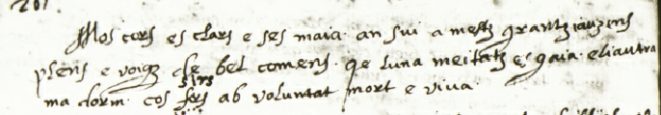 201
Mos cors es clars e ses maia. an sui a mestz grantz iauzens
plens e voigz de bel comens. qe luna meitatz es gaia. eliautra
ma dorm. cos sirs ab voluntat mort e viva.